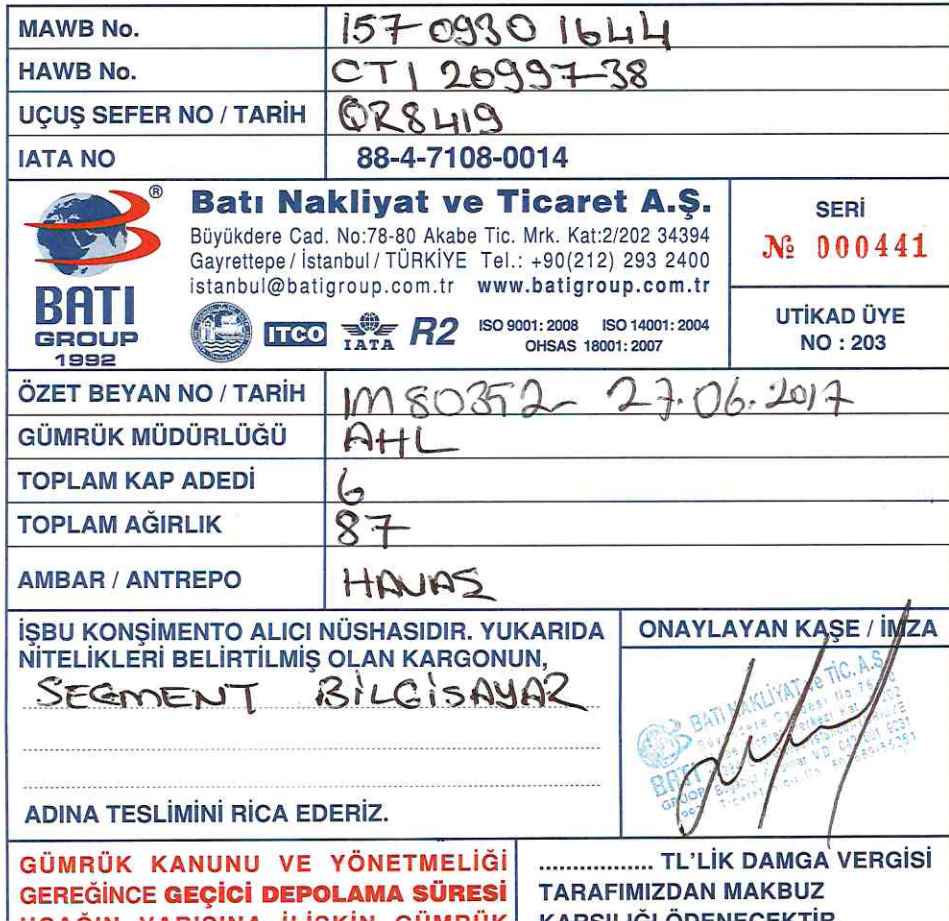 MAWB No. 157 0930 1644
HAWB No. CTI 20997-38
UÇUŞ SEFER NO / TARİH QR8419
IATA NO 88-4-7108-0014
®
Batı Nakliyat ve Ticaret A.Ş.
Büyükdere Cad. No:78-80 Akabe Tic. Mrk. Kat:2/202 34394
Gayrettepe / İstanbul / TÜRKİYE Tel.: +90(212) 293 2400
istanbul@batigroup.com.tr www.batigroup.com.tr
BATI
GROUP
1992
ITCO IATA R2 ISO 9001: 2008 ISO 14001: 2004
OHSAS 18001: 2007
SERİ
№ 000441
UTİKAD ÜYE
NO : 203
ÖZET BEYAN NO / TARİH IM80352- 27.06.2017
GÜMRÜK MÜDÜRLÜĞÜ AHL
TOPLAM KAP ADEDİ 6
TOPLAM AĞIRLIK 87
AMBAR / ANTREPO HAVAS
İŞBU KONŞİMENTO ALICI NÜSHASIDIR. YUKARIDA
NİTELİKLERİ BELİRTİLMİŞ OLAN KARGONUN,
SEGMENT BİLGİSAYAR
ADINA TESLİMİNİ RİCA EDERİZ.
ONAYLAYAN KAŞE / İMZA
BATI NAKLİYAT ve TİC. A.S.
GÜMRÜK KANUNU VE YÖNETMELİĞİ
GEREĞİNCE GEÇİCİ DEPOLAMA SÜRESİ
UÇAĞIN VARIŞINA İLİŞKİN GÜMRÜK
................. TL'LİK DAMGA VERGİSİ
TARAFIMIZDAN MAKBUZ
KARŞILIĞI ÖDENECEKTİR